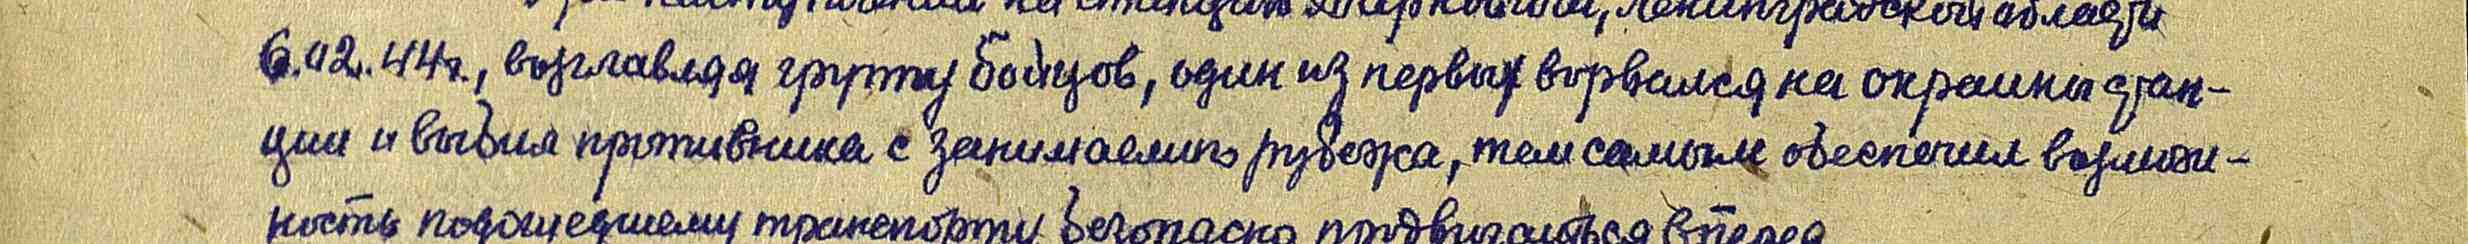 при наступлении на станцию, Ленинградской области
6.02.44г., возглавляя группу бойцов, один из первых ворвался на окраины стан-
ции и выбил противника с занимаемого рубежа, тем самым обеспечил возмож-
ность подошедшему транспорту безопасно продвигаться вперед